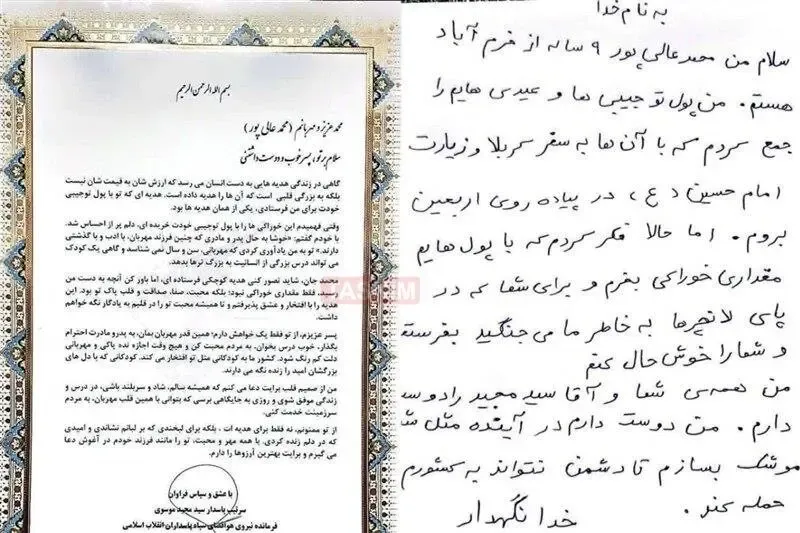 بسم الله الرحمن الرحیم
محمد عزیز و مهربانم (محمد عالی پور)
سلام بر تو، پسر خوب و دوست داشتنی
گاهی در زندگی هدیه هایی به دست انسان می رسد که ارزش شان به قیمت شان نیست
بلکه به بزرگی قلبی است که آن ها را هدیه داده است. هدیه ای که تو با پول توجیبی
خودت برای من فرستادی، یکی از همان هدیه ها بود.
وقتی فهمیدم این خوراکی ها را با پول توجیبی خودت خریده ای، دلم پر از احساس شد.
با خودم گفتم: «خوشا به حال پدر و مادری که چنین فرزند مهربان، با ادب و با گذشتی
دارند.» تو به من یادآوری کردی که مهربانی، سن و سال نمی شناسد و گاهی یک کودک
می تواند درس بزرگی از انسانیت به بزرگ ترها بدهد.
محمد جان، شاید تصور کنی هدیه کوچکی فرستاده ای، اما باور کن آنچه به دست من
رسید، فقط مقداری خوراکی نبود؛ بلکه محبت، صفا، صداقت و قلب پاک تو بود. این
هدیه را با افتخار و عشق پذیرفتم و تا همیشه محبت تو را در قلبم به یادگار نگه خواهم
داشت.
پسر عزیزم، از تو فقط یک خواهش دارم؛ همین قدر مهربان بمان، به پدر و مادرت احترام
بگذار، خوب درس بخوان، به مردم محبت کن و هیچ وقت اجازه نده پاکی و مهربانی
دلت کم رنگ شود. کشور ما به کودکانی مثل تو افتخار می کند. کودکانی که با دل های
بزرگشان امید را زنده نگه می دارند.
من از صمیم قلب برایت دعا می کنم که همیشه سالم، شاد و سربلند باشی، در درس و
زندگی موفق شوی و روزی به جایگاهی برسی که بتوانی با همین قلب مهربان، به مردم
سرزمینت خدمت کنی.
از تو ممنونم، نه فقط برای هدیه ات ، بلکه برای لبخندی که بر لبانم نشاندی و امیدی
که در دلم زنده کردی. با همه مهر و محبت، تو را مانند فرزند خودم در آغوش دعا
می گیرم و برایت بهترین آرزوها را دارم.
با عشق و سپاس فراوان
سرتیپ پاسدار سید مجید موسوی
فرمانده نیروی هوافضای سپاه پاسداران انقلاب اسلامی
به نام خدا
سلام من محمد عالی پور ۹ ساله از خرم آباد
هستم. من پول تو جیبی ها و عیدی هایم را
جمع کردم که با آن ها به سفر کربلا و زیارت
امام حسین (ع)، در پیاده روی اربعین
بروم. اما حالا فکر کردم که با پول هایم
مقداری خوراکی بخرم و برای شما که در
پای لانچرها به خاطر ما می جنگید بفرستم
و شما را خوش حال کنم
من همه ی شما و آقا سید مجید را دوست
دارم. من دوست دارم در آینده مثل شما
موشک بسازم تا دشمن نتواند به کشورم
حمله کند.
خدا نگهدار